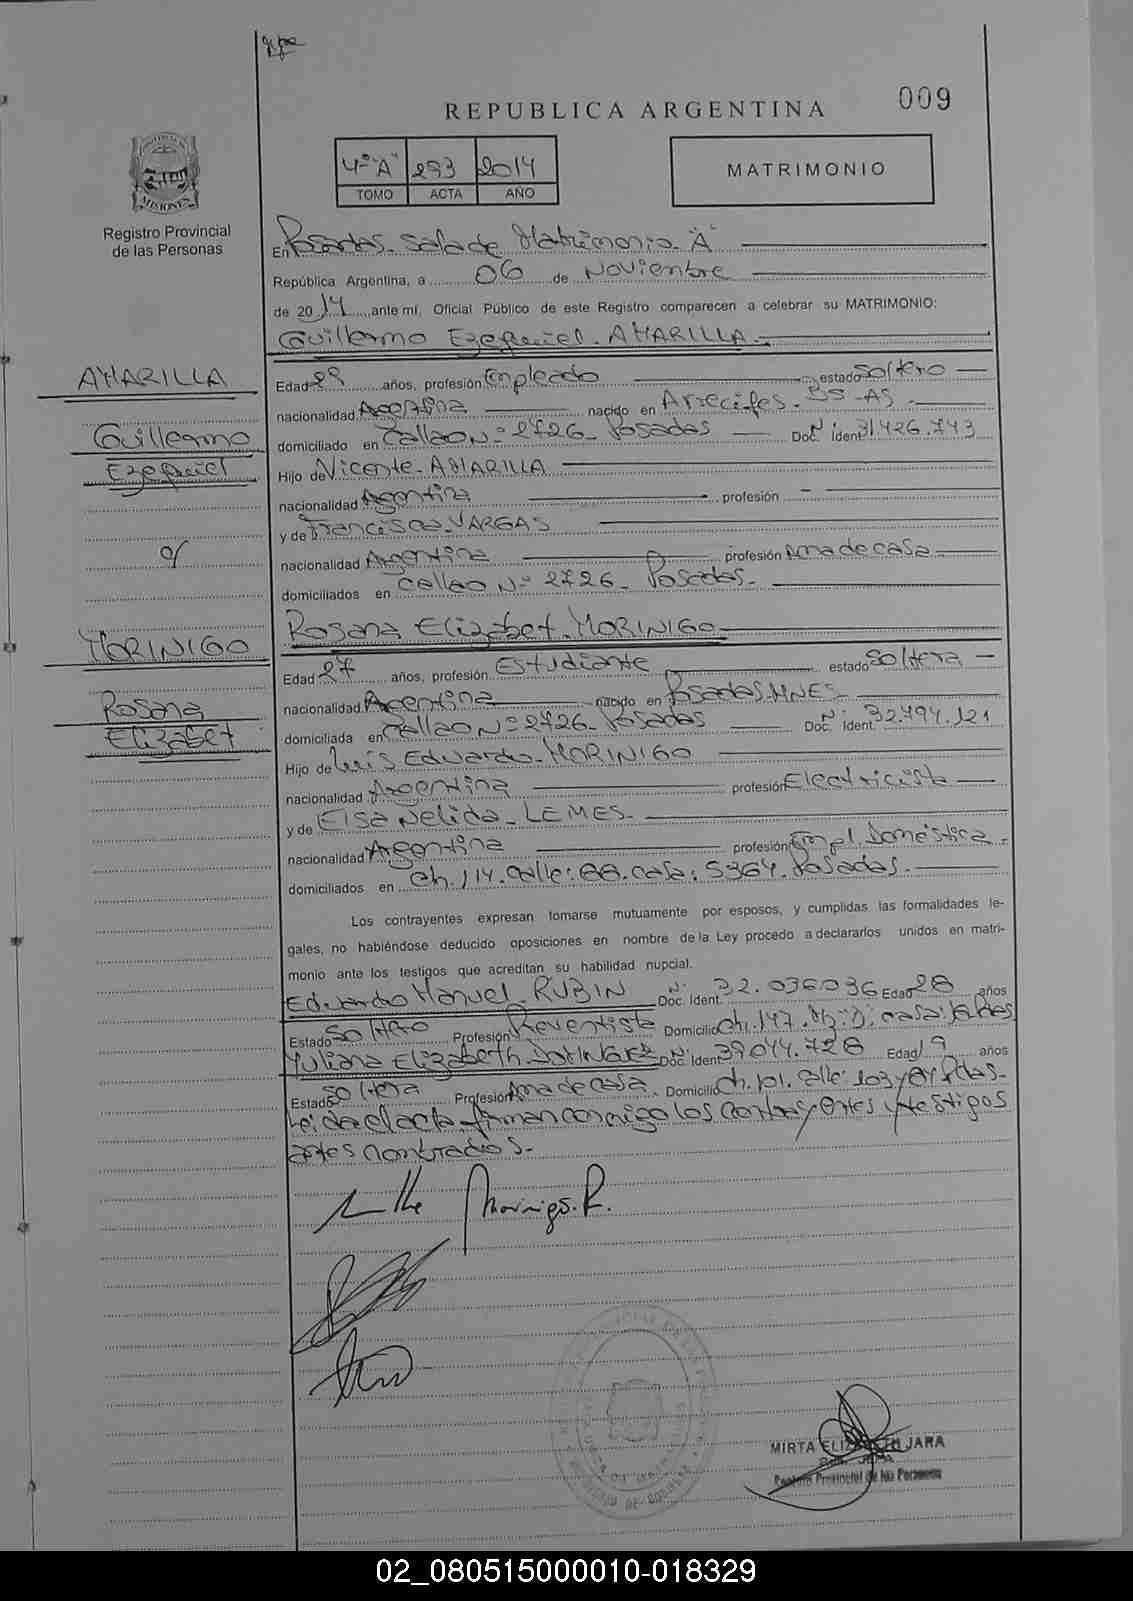 009
REPUBLICA ARGENTINA
4º "A" 293 2014
TOMO ACTA AÑO
MATRIMONIO
MISIONES
Registro Provincial
de las Personas
En Posadas. Sala de Matrimonio. "A"
República Argentina, a 06 de Noviembre
de 2014 ante mí, Oficial Público de este Registro comparecen a celebrar su MATRIMONIO:
Guillermo Ezequiel. AMARILLA.
AMARILLA
Guillermo
Ezequiel
Edad 29 años, profesión Empleado estado soltero
nacionalidad Argentina nacido en Arrecifes. BS-AS.
domiciliado en Callao Nº 2726. Posadas Doc. Ident. Nº 31.426.743
Hijo de Vicente. AMARILLA
nacionalidad Argentina profesión -
y de Francisca. VARGAS
nacionalidad Argentina profesión Ama de casa
domiciliados en Callao Nº 2726. Posadas.
Rosana Elizabet. MORINIGO
MORINIGO
Rosana
Elizabet
Edad 27 años, profesión Estudiante estado soltera
nacionalidad Argentina nacido en Posadas. MNES.
domiciliada en Callao Nº 2726. Posadas Doc. Ident. Nº 32.794.121
Hijo de Luis Eduardo. MORINIGO
nacionalidad Argentina profesión Electricista
y de Elsa Nelida. LEMES.
nacionalidad Argentina profesión Empl. Doméstica.
domiciliados en Ch. 114. Calle: 66. casa: 5364. Posadas.
Los contrayentes expresan tomarse mutuamente por esposos, y cumplidas las formalidades le-
gales, no habiéndose deducido oposiciones en nombre de la Ley procedo a declararlos unidos en matri-
monio ante los testigos que acreditan su habilidad nupcial.
Eduardo Manuel. RUBIN Doc. Ident. Nº 32.036036 Edad 28 años
Estado soltero Profesión Reventista Domicilio Ch. 147. casa:
Yuliana Elizabeth. Doc. Ident. Nº 39044.728 Edad 19 años
Estado soltera Profesión Ama de casa. Domicilio Ch. 101. calle: 103 y Pdas.
Leida el acta firman conmigo los contrayentes y testigos
antes nombrados.
Morinigo. R.
MIRTA ELIZABETH JARA
Registro Provincial de las Personas
02_080515000010-018329